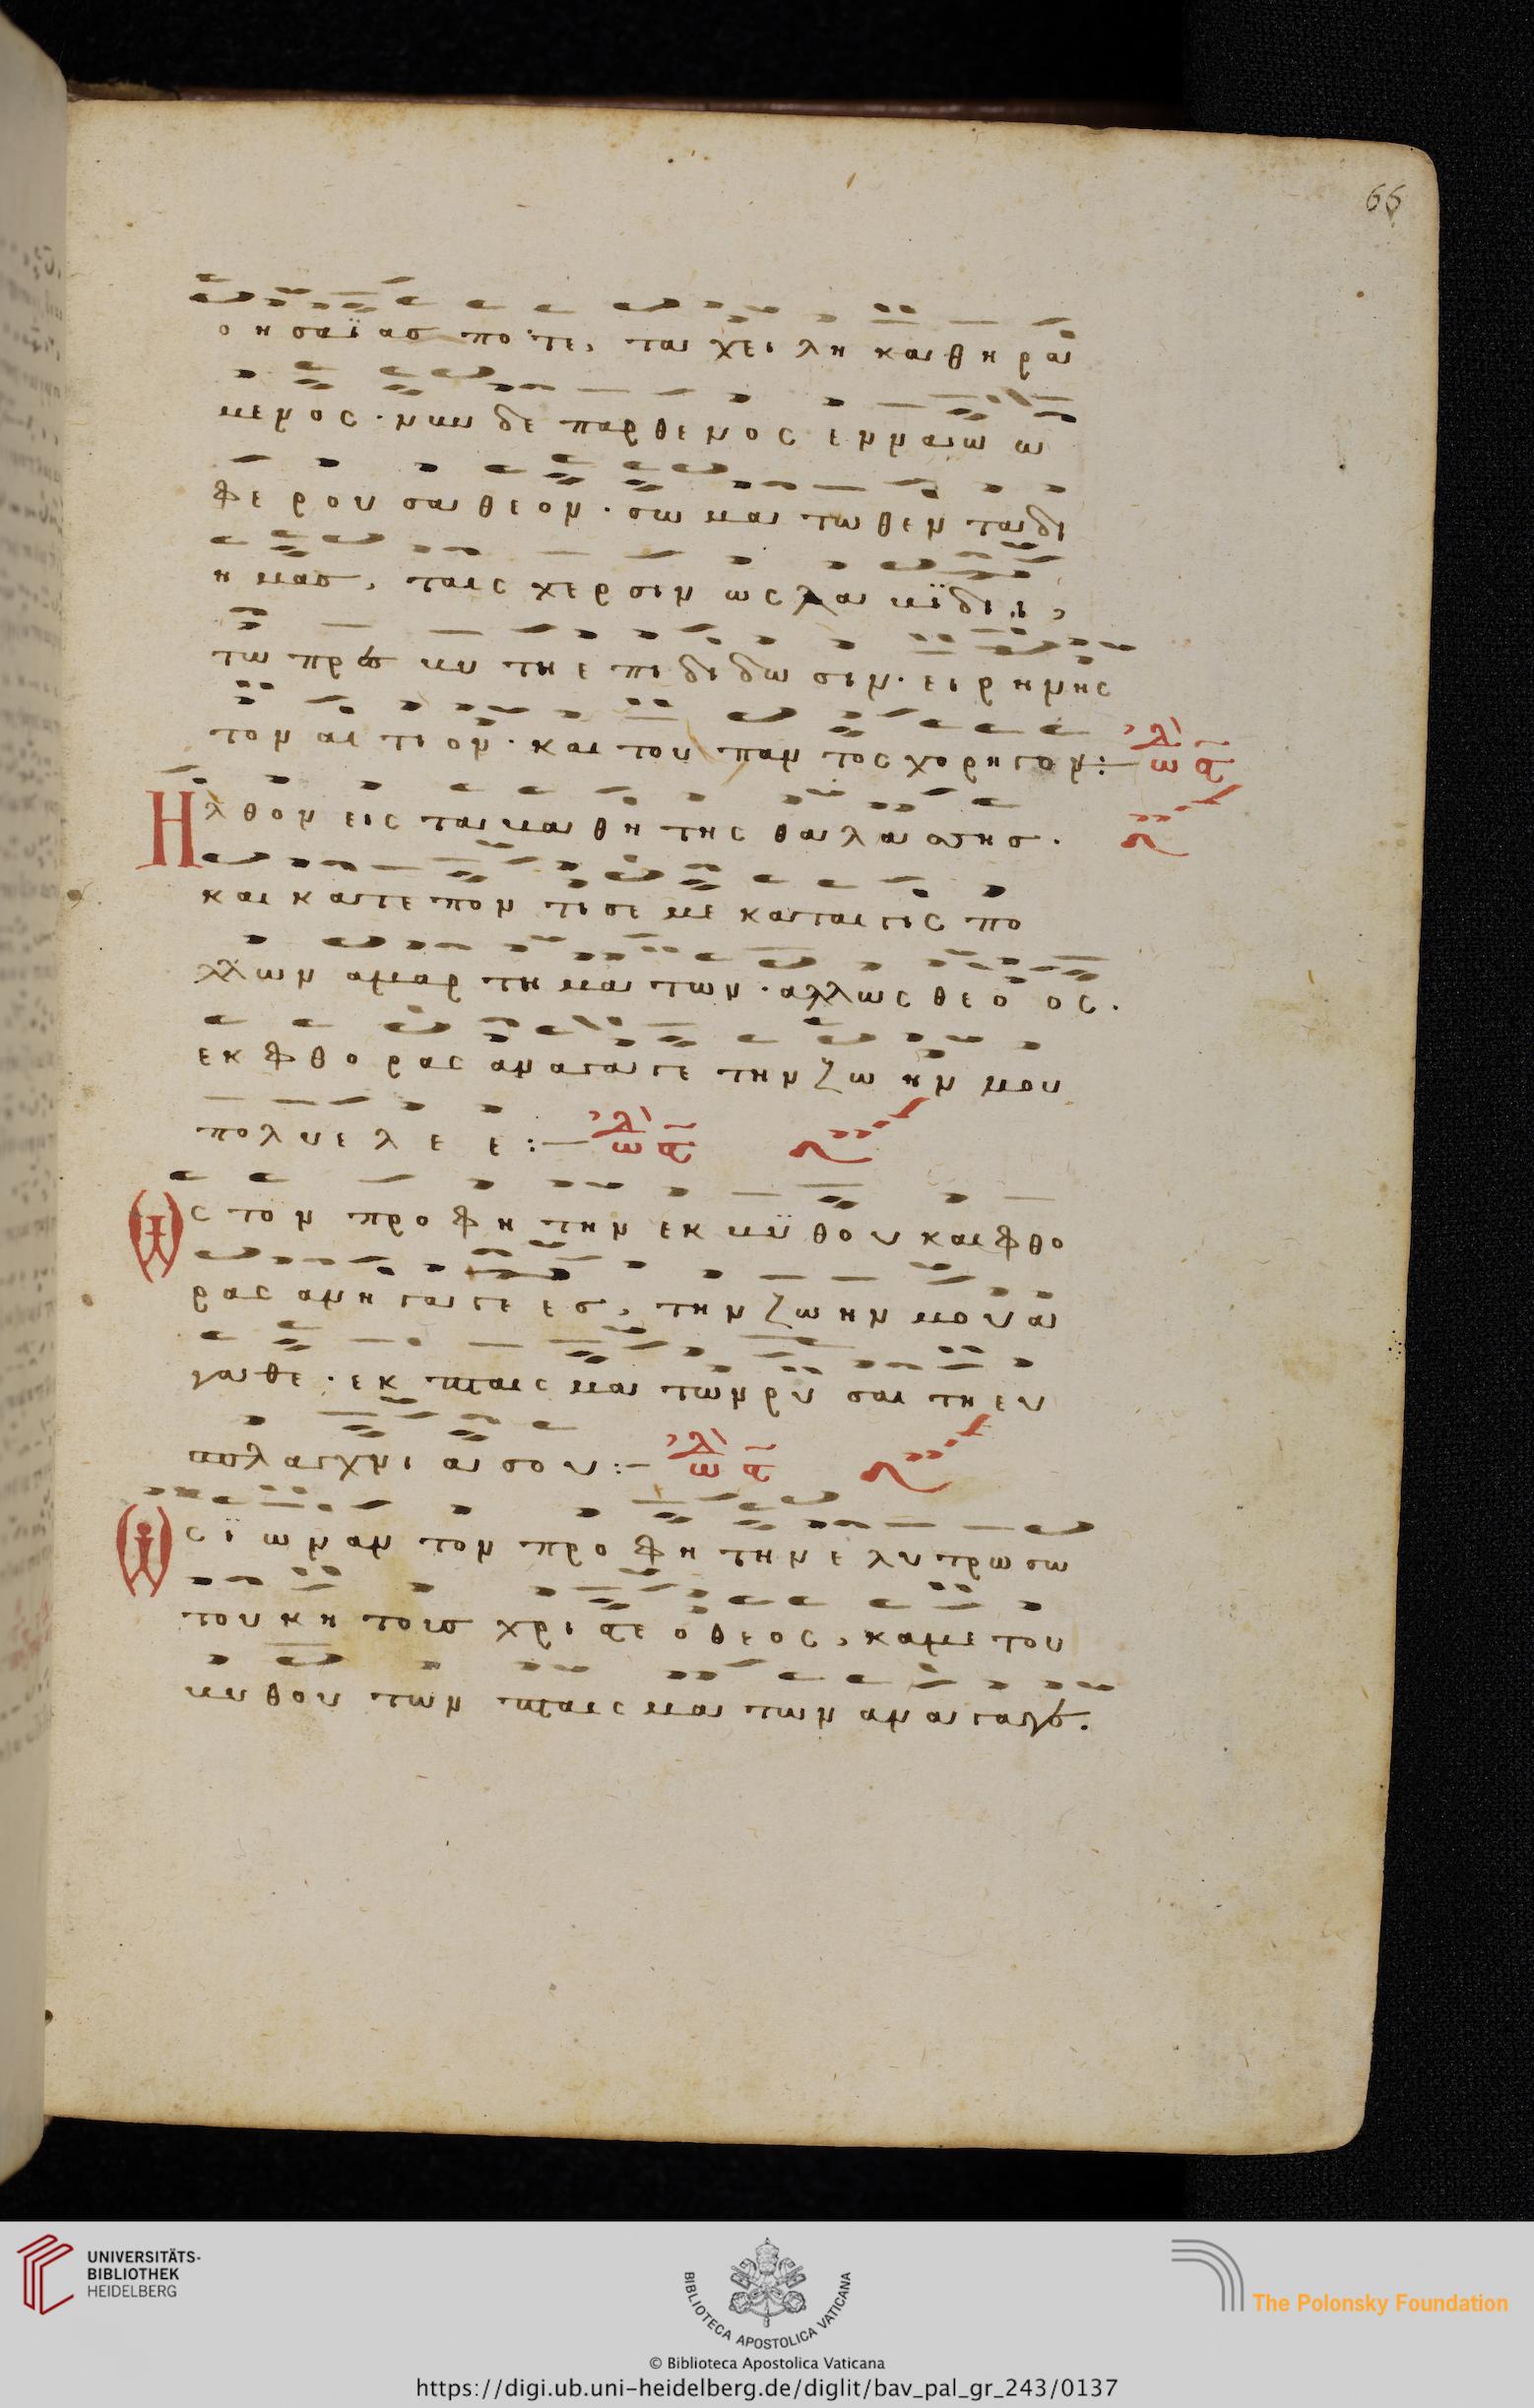 66
ο η σα ϊ ας πο τε, τα χει λη κα θη ρα
με νος · νυν δε παρ θε νος εν να ω ω
φε ρου σα θε ον · σω μα τω θεν τα δι
η μας, ταις χερ σιν ως λα μϊ δι ι,
τω πρεσ μυ τη ε πι δι δω σιν · ει ρη νης
τον αι τι ον · και του παν τος χο ρη γον :— ᾠλ α
Η λθον εις τα μα θη της θα λα σσης ·
και κα τε πον τι σε με κα ται γις πο
λλων α μαρ τη μα των · αλλ ως θε ο ος ·
εκ φθο ρας α να γα γε την ζω ην μου
πο λυ ε λε ε :— ᾠλ α
Ως τον προ φη την εκ μϋ θου και φθο
ρας α νη γα γε ες, την ζω ην μου α
γα θε · εκ πταις μα των ρυ σαι τη ευ
σπλα γχνι α σου :— ᾠλ α
Ως ϊ ω ναν τον προ φη την ε λυ τρω σω
του κη τους χρι στε ο θε ος, κα με του
μυ θου των πταις μα των α να γα γε ·
UNIVERSITÄTS-
BIBLIOTHEK
HEIDELBERG
BIBLIOTECA APOSTOLICA VATICANA
The Polonsky Foundation
© Biblioteca Apostolica Vaticana
https://digi.ub.uni-heidelberg.de/diglit/bav_pal_gr_243/0137